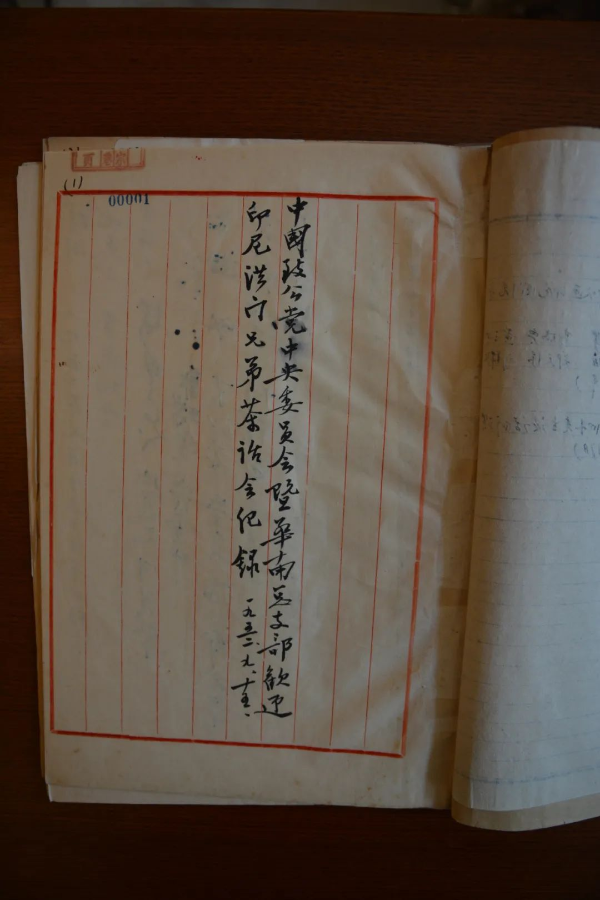 (1)
00001
中國致公党中央委員会暨華南总支部歡迎
印尼洪门兄弟茶话会纪録 一九五二、九、十五、